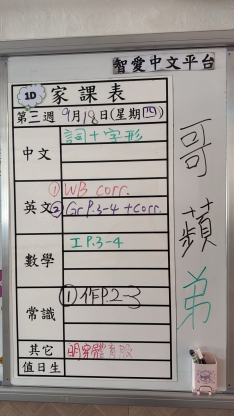 智愛中文平台
1D 家課表
第三週 9月18日(星期四)
中文 詞+字形
英文 ① WB corr.
② Gr P.3-4 + Corr.
數學 工P.3-4
常識 ① 作P.2-3
其它 明穿體育服
值日生
哥
蘋
弟